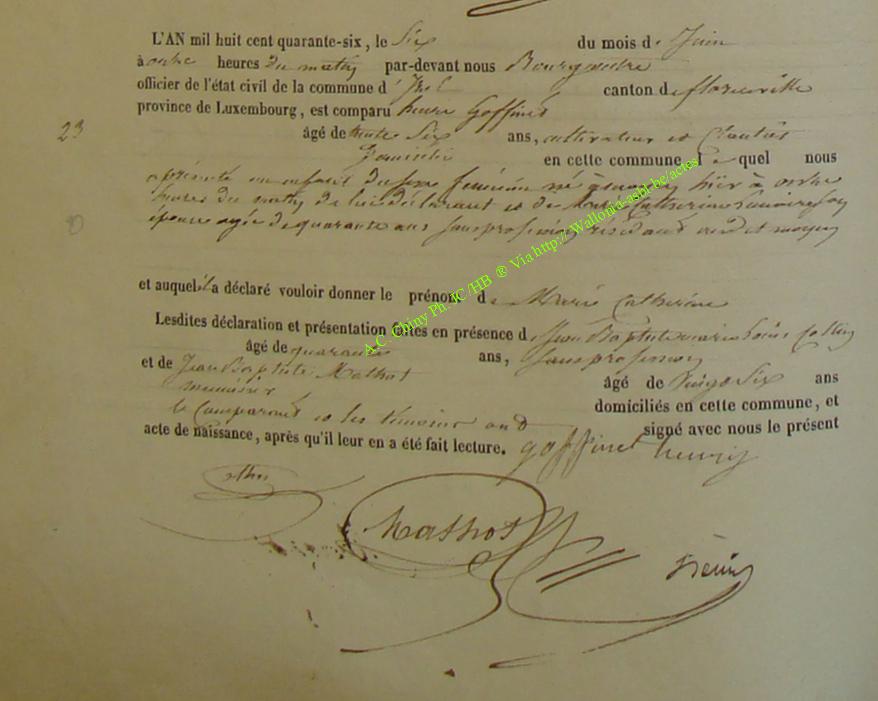 L'AN mil huit cent quarante-six, le Six du mois de Juin
à onze heures du matin par-devant nous Bourgmestre
officier de l'état civil de la commune d' canton de florenville
province de Luxembourg, est comparu henri Goffinet
23 âgé de trente Six ans, cultivateur et
domicilié en cette commune, le quel nous
a présenté un enfant du sexe féminin né à moyen hier à onze
heures du matin de lui déclarant et de Catherine son
épouse agée de quarante ans sans profession résidant audit moyen
et auquel il a déclaré vouloir donner le prénom de Marie Catherine
Lesdites déclaration et présentation faites en présence de Jean Baptiste
âgé de quarante ans, sans profession
et de Jean Baptiste Mathot âgé de vingt Six ans
menuisier domiciliés en cette commune, et
le Comparant et les témoins ont signé avec nous le présent
acte de naissance, après qu'il leur en a été fait lecture. goffinet henry
Mathot
A.C. Chiny Ph. JC /HB ® Via http://Wallonia-asbl.be/actes